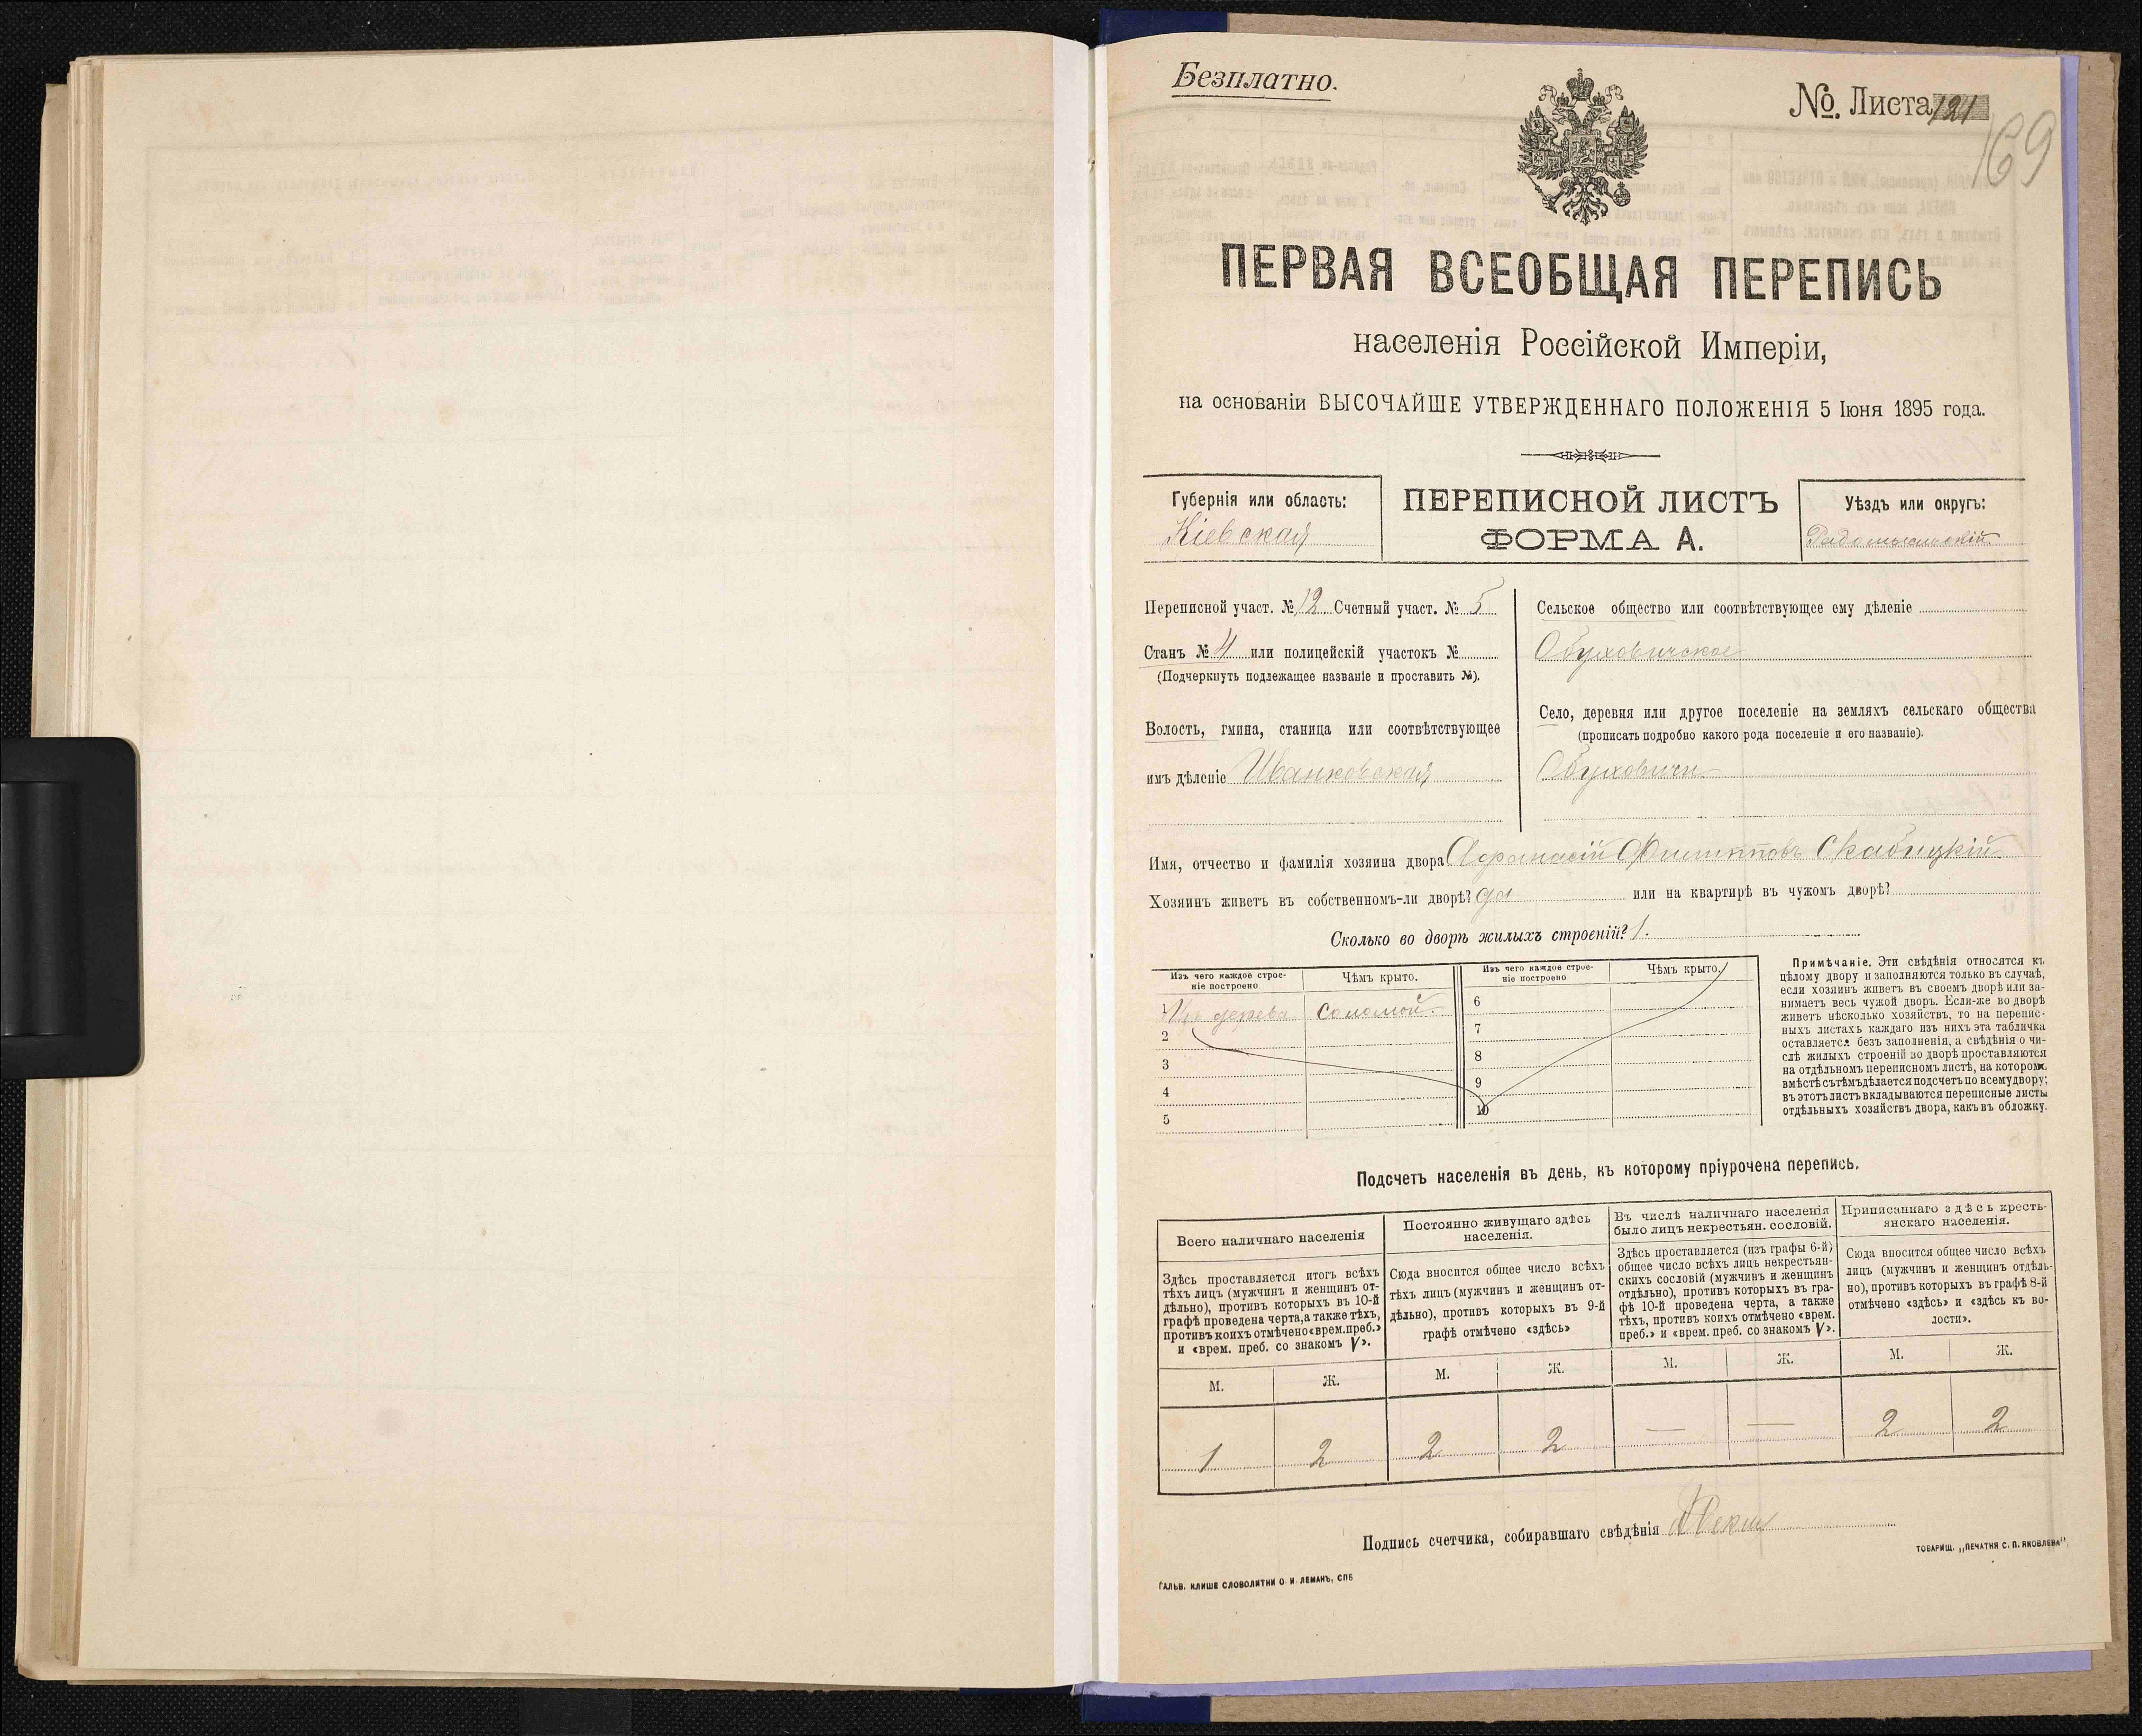 Безплатно.
№ Листа 121
169
ПЕРВАЯ ВСЕОБЩАЯ ПЕРЕПИСЬ
населенія Россійской Имперіи,
на основаніи ВЫСОЧАЙШЕ УТВЕРЖДЕННАГО ПОЛОЖЕНІЯ 5 Іюня 1895 года.
Губернія или область:
Кіевская
ПЕРЕПИСНОЙ ЛИСТЪ
ФОРМА А.
Уѣздъ или округъ:
Радомысльскій
Переписной участ. № 12 Счетный участ. № 5
Станъ № 4 или полицейскій участокъ №
(Подчеркнуть подлежащее названіе и проставить №).
Волость, гмина, станица или соотвѣтствующее
имъ дѣленіе Иванковская
Сельское общество или соотвѣтствующее ему дѣленіе
Обуховичское
Село, деревня или другое поселеніе на земляхъ сельскаго общества
(прописать подробно какого рода поселеніе и его названіе).
Обуховичи
Имя, отчество и фамилія хозяина двора Афанасій Филипповъ Скабицкій
Хозяинъ живетъ въ собственномъ-ли дворѣ? да или на квартирѣ въ чужомъ дворѣ?
Сколько во дворѣ жилыхъ строеній? 1.
Изъ чего каждое строе-
ніе построено
Чѣмъ крыто.
Изъ чего каждое строе-
ніе построено
Чѣмъ крыто.
1 Изъ дерева соломой
2
3
4
5
6
7
8
9
10
Примѣчаніе. Эти свѣдѣнія относятся къ
цѣлому двору и заполняются только въ случаѣ,
если хозяинъ живетъ въ своемъ дворѣ или за-
нимаетъ весь чужой дворъ. Если-же во дворѣ
живетъ нѣсколько хозяйствъ, то на перепис-
ныхъ листахъ каждаго изъ нихъ эта табличка
оставляется безъ заполненія, а свѣдѣнія о чи-
слѣ жилыхъ строеній во дворѣ проставляются
на отдѣльномъ переписномъ листѣ, на которомъ
вмѣстѣ съ тѣмъ дѣлается подсчетъ по всему двору;
въ этотъ листъ вкладываются переписные листы
отдѣльныхъ хозяйствъ двора, какъ въ обложку.
Подсчетъ населенія въ день, къ которому пріурочена перепись.
Всего наличнаго населенія
Здѣсь проставляется итогъ всѣхъ
тѣхъ лицъ (мужчинъ и женщинъ от-
дѣльно), противъ которыхъ въ 10-й
графѣ проведена черта, а также тѣхъ,
противъ коихъ отмѣчено «врем. преб.»
и «врем. преб. со знакомъ V».
Постоянно живущаго здѣсь
населенія.
Сюда вносится общее число всѣхъ
тѣхъ лицъ (мужчинъ и женщинъ от-
дѣльно), противъ которыхъ въ 9-й
графѣ отмѣчено «здѣсь»
Въ числѣ наличнаго населенія
было лицъ некрестьян. сословій.
Здѣсь проставляется (изъ графы 6-й)
общее число всѣхъ лицъ некрестьян-
скихъ сословій (мужчинъ и женщинъ
отдѣльно), противъ которыхъ въ гра-
фѣ 10-й проведена черта, а также
тѣхъ, противъ коихъ отмѣчено «врем.
преб.» и «врем. преб. со знакомъ V».
Приписаннаго здѣсь кресть-
янскаго населенія.
Сюда вносится общее число всѣхъ
лицъ (мужчинъ и женщинъ отдѣль-
но), противъ которыхъ въ графѣ 8-й
отмѣчено «здѣсь» и «здѣсь къ во-
лости».
М. Ж. М. Ж. М. Ж. М. Ж.
1 2 2 2 — — 2 2
Подпись счетчика, собиравшаго свѣдѣнія
ГАЛЬВ. КЛИШЕ СЛОВОЛИТНИ О. И. ЛЕМАНЪ, СПБ
ТОВАРИЩ. „ПЕЧАТНЯ С. П. ЯКОВЛЕВА"